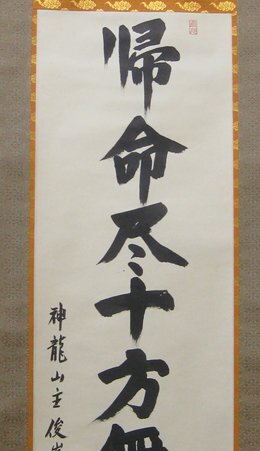 帰命尽十方無
神龍山主俊